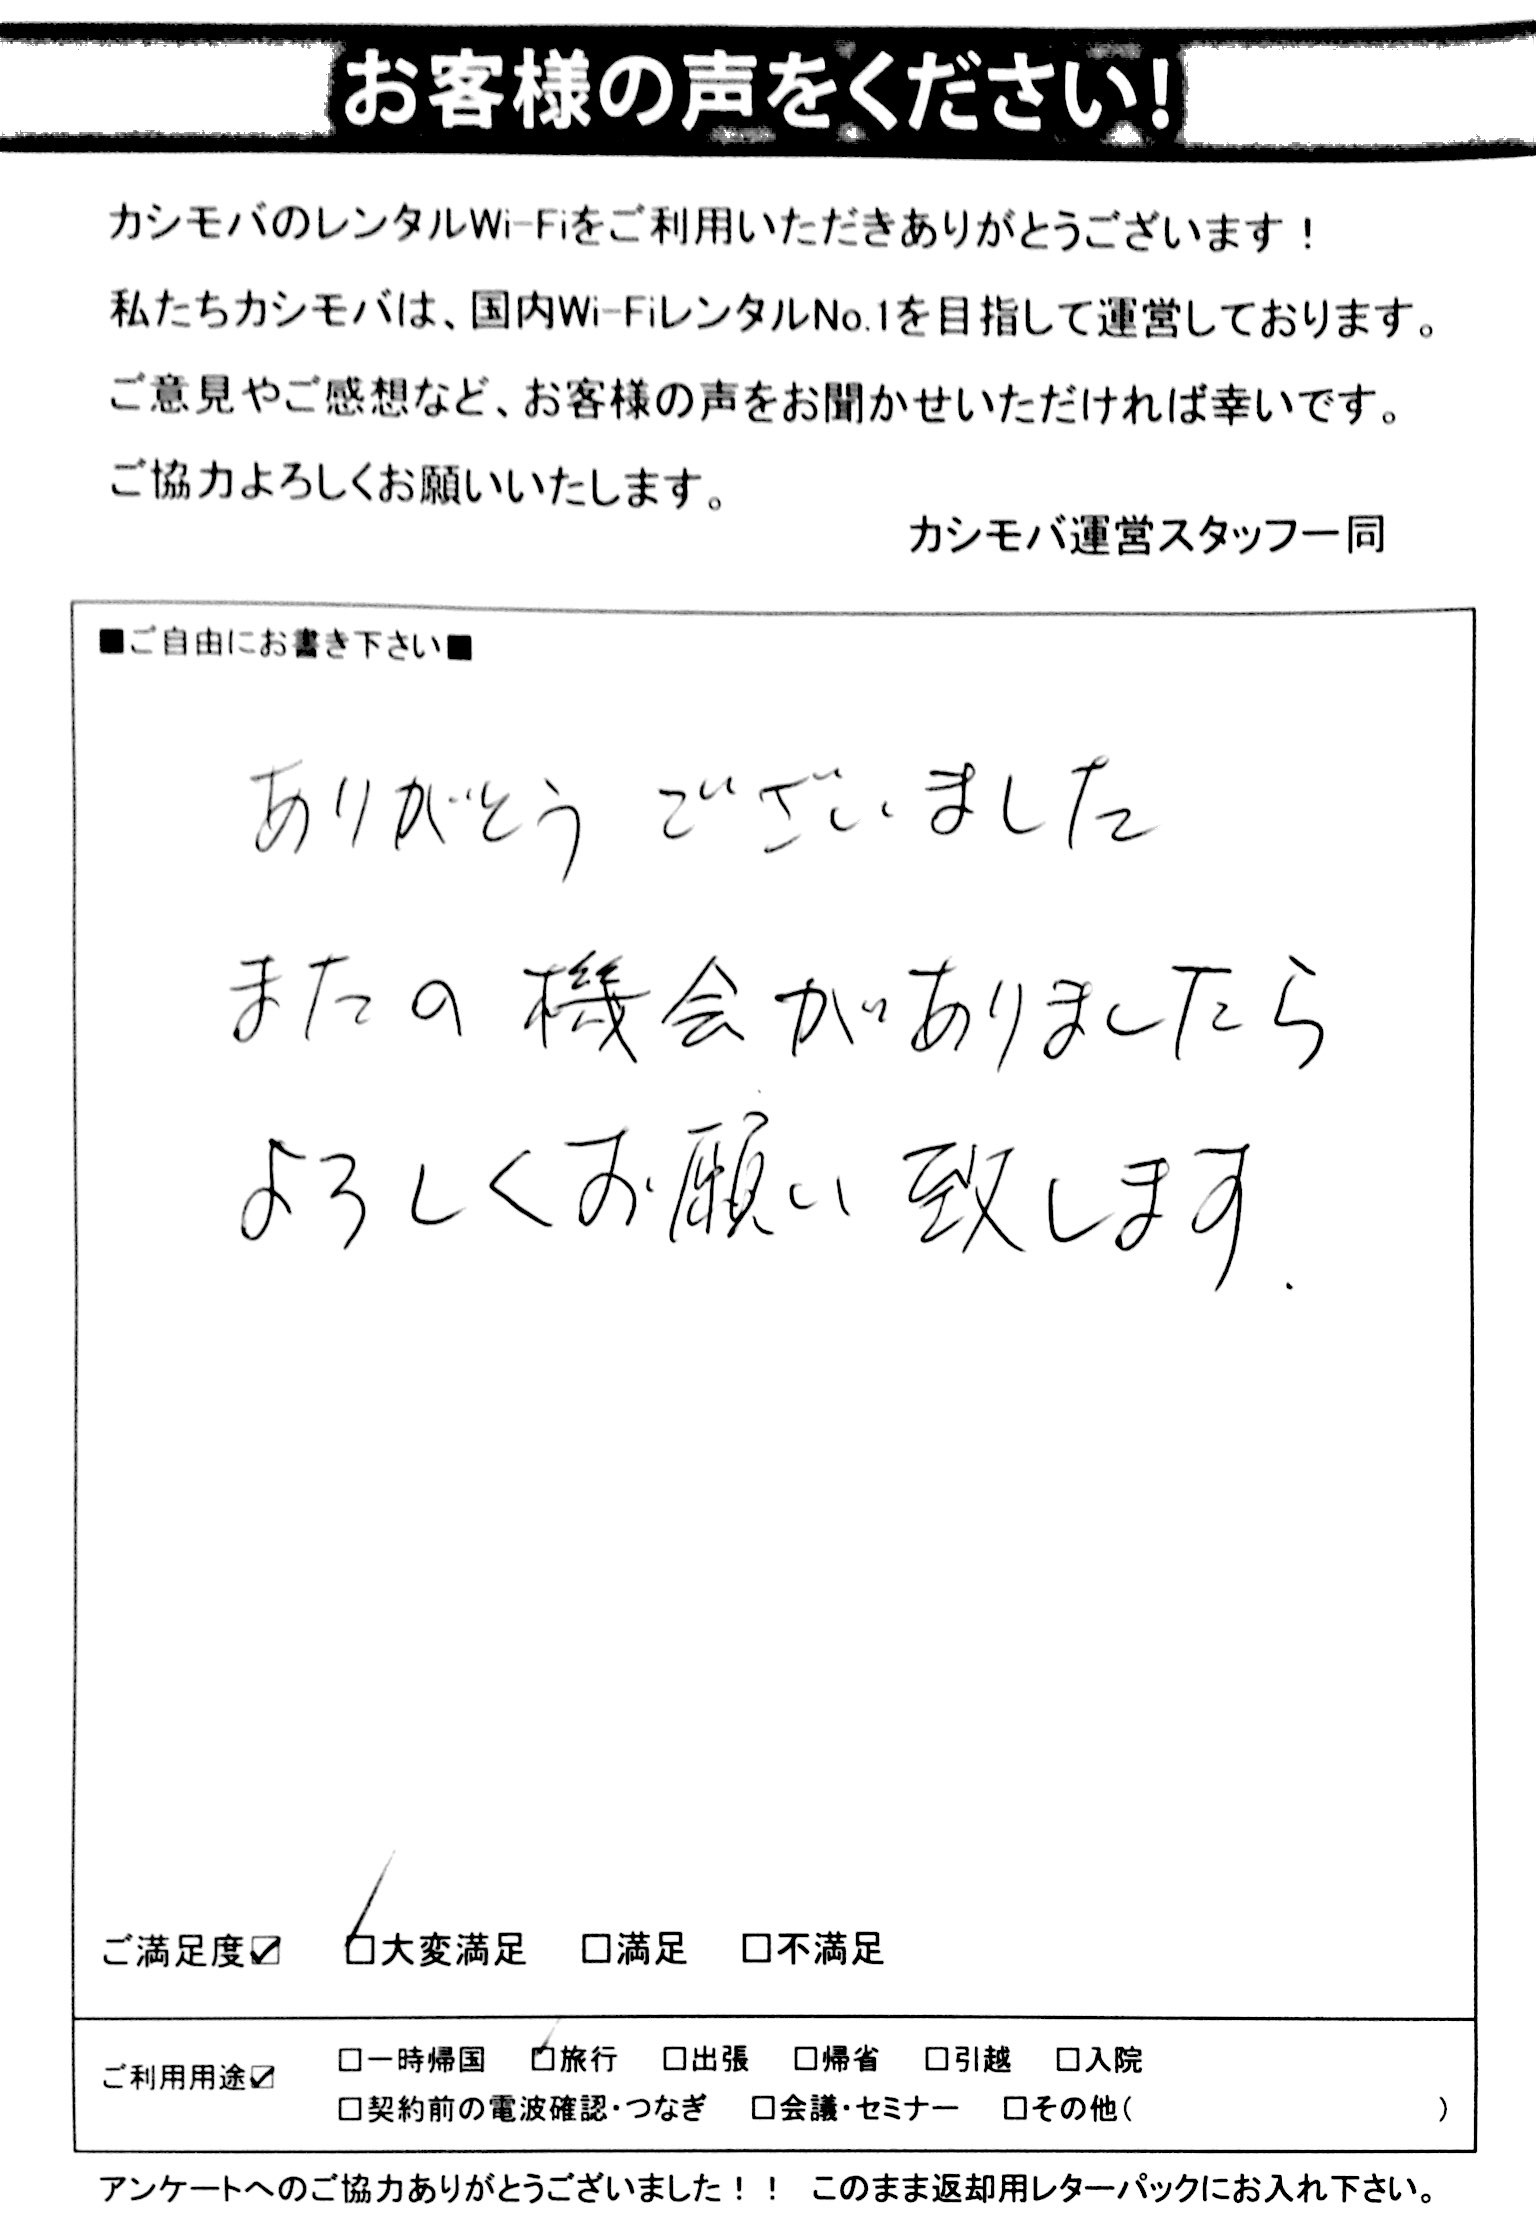 お客様の声をください!
カシモバのレンタルWi-Fiをご利用いただきありがとうございます！
私たちカシモバは、国内Wi-FiレンタルNo.1を目指して運営しております。
ご意見やご感想など、お客様の声をお聞かせいただければ幸いです。
ご協力よろしくお願いいたします。
カシモバ運営スタッフ一同
■ご自由にお書き下さい■
ありがとうございました
またの機会がありましたら
よろしくお願い致します.
ご満足度☑ ☑大変満足 □満足 □不満足
ご利用用途☑ □一時帰国 ☑旅行 □出張 □帰省 □引越 □入院
□契約前の電波確認・つなぎ □会議・セミナー □その他( )
アンケートへのご協力ありがとうございました！！ このまま返却用レターパックにお入れ下さい。